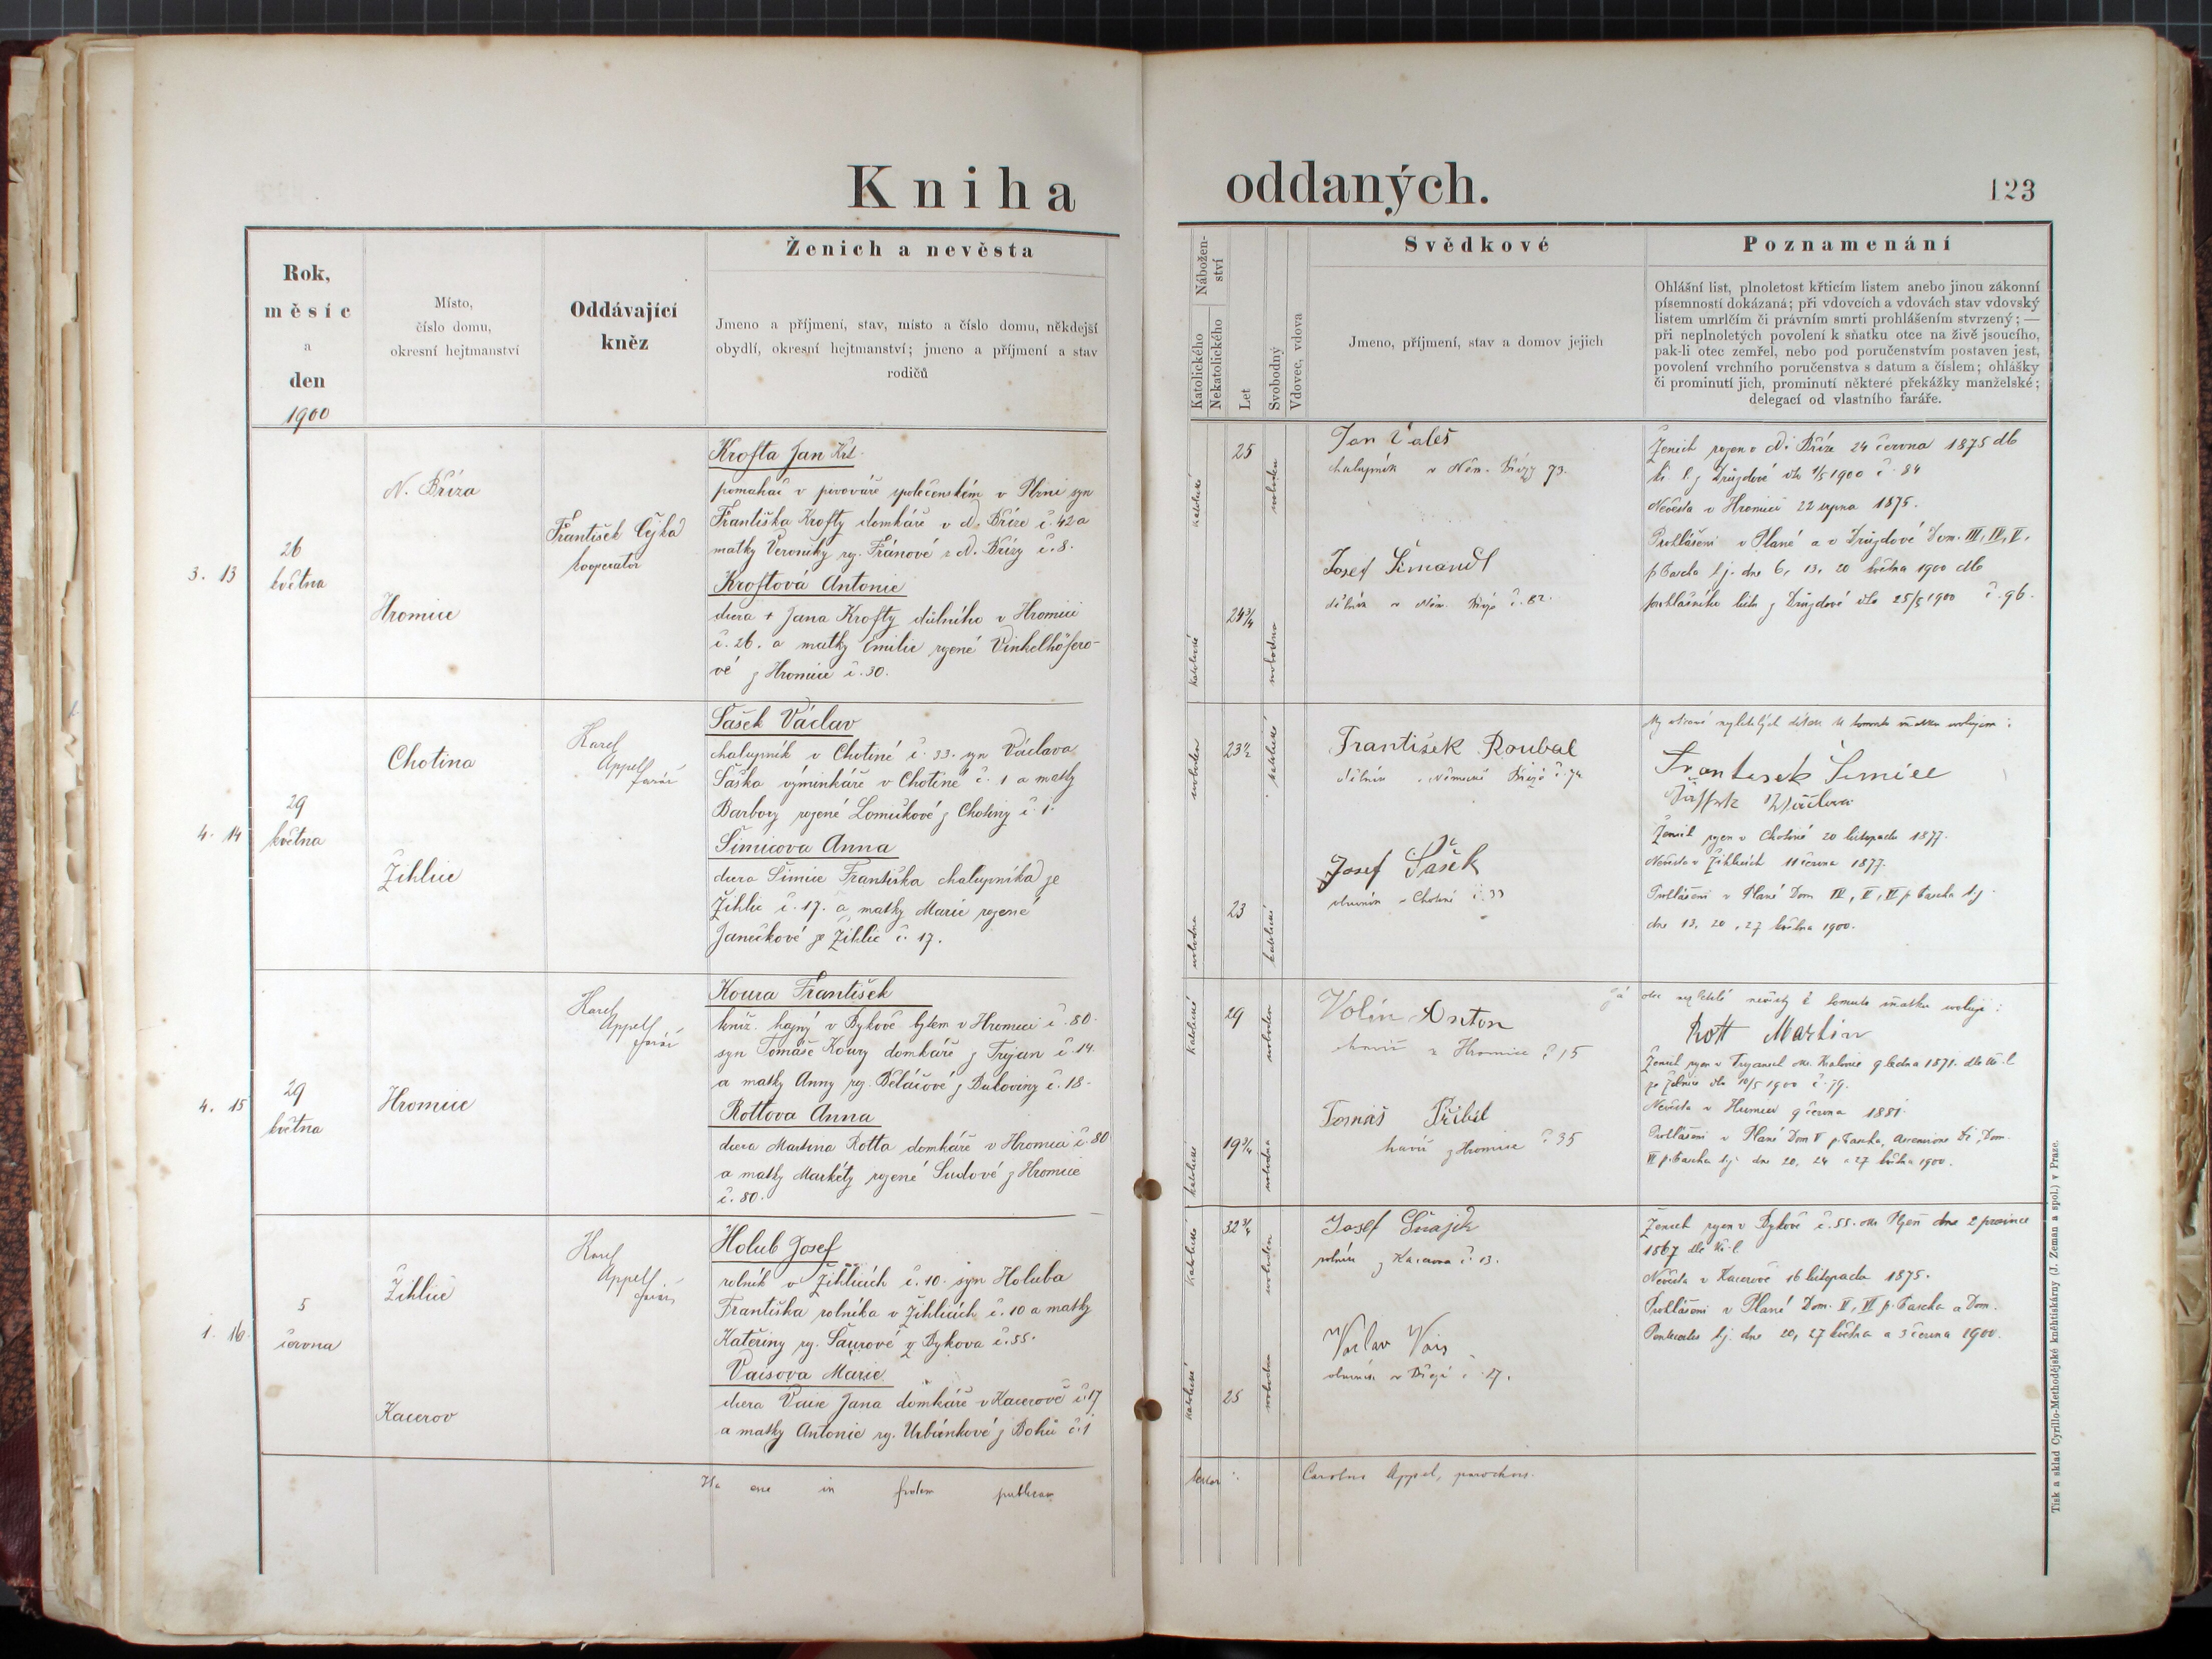 Kniha oddaných.
123
Rok,
měsíc
a
den
1900
Místo,
číslo domu,
okresní hejtmanství
Oddávající
kněz
Ženich a nevěsta
Jmeno a příjmení, stav, místo a číslo domu, někdejší
obydlí, okresní hejtmanství; jmeno a příjmení a stav
rodičů
Nábožen-
ství
Katolického
Nekatolického
Let
Svobodný
Vdovec, vdova
Svědkové
Jmeno, příjmení, stav a domov jejich
Poznamenání
Ohlášní list, plnoletost křticím listem anebo jinou zákonní
písemností dokázaná; při vdovcích a vdovách stav vdovský
listem umrlčím či právním smrti prohlášením stvrzený; —
při neplnoletých povolení k sňatku otce na živě jsoucího,
pak-li otec zemřel, nebo pod poručenstvím postaven jest,
povolení vrchního poručenstva s datum a číslem; ohlášky
či prominutí jich, prominutí některé překážky manželské;
delegací od vlastního faráře.
3. 13
26
května
N. Bříza
Hromice
František Cejka
kooperator
Krofta Jan Krt.
pomahač v pivováře společenském v Plzni syn
Františka Krofty domkáře v N. Bříze č. 42 a
matky Veroniky rz. Fránové z N. Břízy č. 8.
Kroftová Antonie
dcera + Jana Krofty důlního v Hromici
č. 26. a matky Emilie rozené Vinkelhöfero-
vé z Hromice č. 30.
katolické
25
svoboden
katolické
24 3/4
svobodna
Jan Valeš
chalupník v Něm. Břízy 73.
Josef Šimandl
dělník v Něm. Bříze č. 82.
Ženich rozen v N. Bříze 24 června 1875 dle
kř. l. z Druzdové dto 1/5 1900 č. 84
Nevěsta v Hromici 22 srpna 1875.
Prohlášeni v Plané a v Druzdové Dom. III, IV, V,
p. Pascha t.j. dne 6, 13, 20 května 1900 dle
prohlášního listu z Druzdové dto 25/5 1900 č. 96.
4. 14
29
května
Chotina
Žihlice
Karel
Appell
farář
Šašek Václav
chalupník v Chotiné č. 33. syn Václava
Šaška výminkáře v Chotině č. 1 a matky
Barbory rozené Lomičkové z Chotiny č. 1.
Šimicova Anna
dcera Šimice Františka chalupníka ze
Žihlic č. 17. a matky Marie rozené
Janečkové ze Žihlic č. 17.
svoboden
23 1/2
katolické
svobodna
23
katolické
František Roubal
dělník v Německé Bříze č. 74
Josef Šašek
v Chotiné č. 33
My otcové nezletilých dítek k tomuto sňatku svolujem:
František Šimice
Ženich rozen v Chotině 20 listopadu 1877.
Nevěsta v Žihlicích 11 června 1877.
Prohlášeni v Plané Dom IV, V, VI p. Pascha t.j.
dne 13, 20, 27 května 1900.
4. 15
29
května
Hromice
Karel
Appell
farář
Koura František
kníž. hajný v Bykově bytem v Hromici č. 80.
syn Tomáše Koury domkáře z Trojan č. 14.
a matky Anny roz. Běláčové z Bukoviny č. 18.
Rottova Anna
dcera Martina Rotta domkáře v Hromici č. 80
a matky Markéty rozené Sudové z Hromice
č. 80.
katolické
29
svoboden
katolické
19 3/4
svobodna
Volín Anton
havíř z Hromice č 15
Tomáš Přibil
havíř z Hromice č 35
Já otec nezletilé nevěsty k tomuto sňatku svoluji:
Rott Martin
Ženich rozen v Trojanech okr. Kralovic 9 ledna 1871. dle kř. l
ze Žebnice dto 10/5 1900 č. 79.
Nevěsta v Hromici 9 června 1881.
Prohlášeni v Plané Dom V p. Pascha, Ascensione Di, Dom.
VI p. Pascha t.j. dne 20, 24 a 27 května 1900.
1. 16.
5
června
Žihlice
Kacerov
Karel
Appell
farář
Holub Josef
rolník v Žihlicích č. 10. syn Holuba
Františka rolníka v Žihlicích č. 10 a matky
Kateřiny rz. Šaurové z Bykova č. 55.
Vaisova Marie
dcera Vaise Jana domkáře v Kacerově č. 17
a matky Antonie rz. Urbánkové z Bohů č. 1
katolické
32 3/4
svoboden
katolické
25
svobodna
Josef Šnajdr
rolník z Kacerova č. 13.
Vaclav Vais
v Bříze č. 17.
Ženich rozen v Bykově č. 55. okr. Plzeň dne 2 prosince
1867 dle kř. l.
Nevěsta v Kacerově 16 listopadu 1875.
Prohlášeni v Plané Dom. V, VI p. Pascha a Dom.
Pentecostes t.j. dne 20, 27 května a 3 června 1900.
Ita esse in fidem publicam testor: Carolus Appel, parochus.
Tisk a sklad Cyrillo-Methodějské knihtiskárny (J. Zeman a spol.) v Praze.